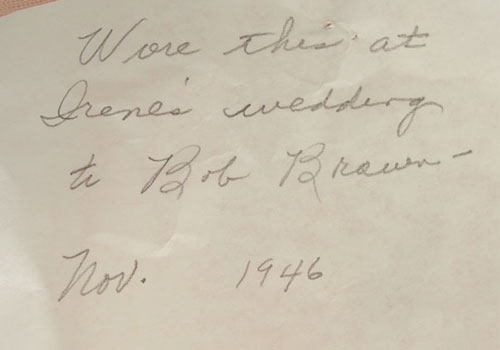 Wore this at
Irene's wedding
to Bob Brown -
Nov. 1946